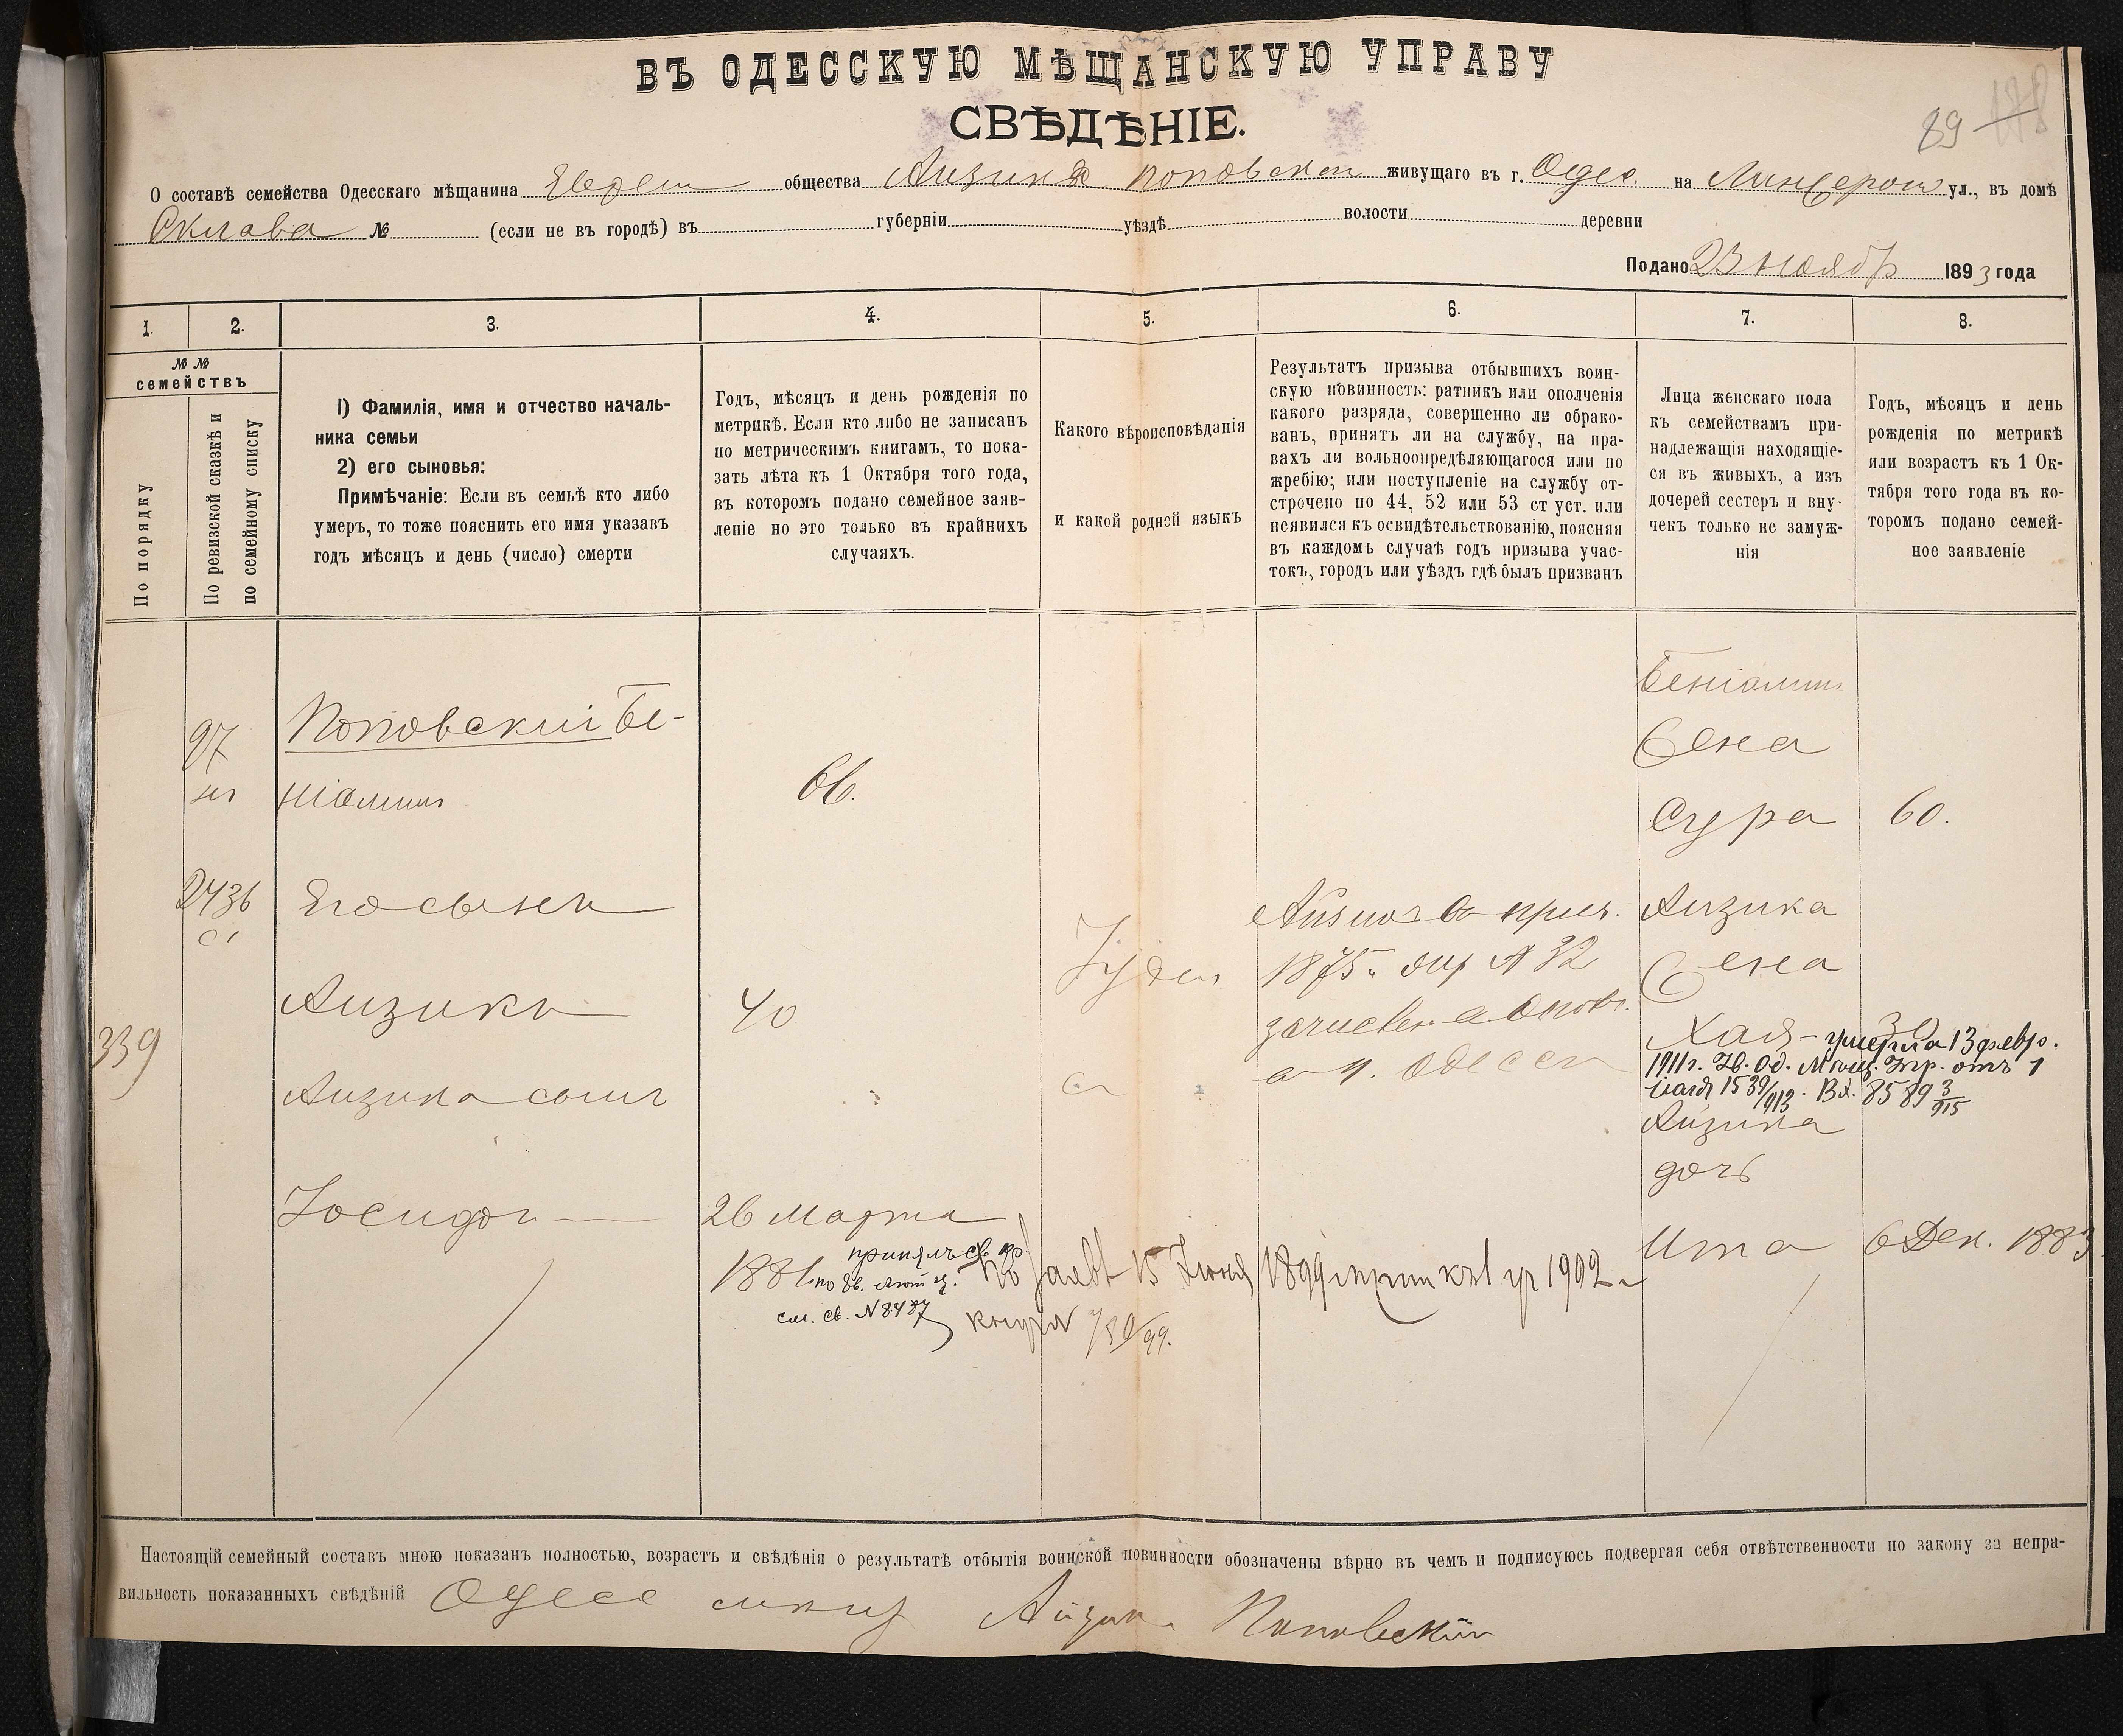 ВЪ ОДЕССКУЮ МѢЩАНСКУЮ УПРАВУ
СВѢДѢНІЕ.
89 178
О составѣ семейства Одесскаго мѣщанина Еврейск общества Аизика Поповскаго живущаго въ г. Одес. на Ланжерон ул., въ домѣ
Склава № (если не въ городѣ) въ губерніи уѣздѣ волости деревни
Подано 23 ноябр 1893 года
1. 2. 3. 4. 5. 6. 7. 8.
№ №
семействъ
По порядку
По ревизской сказкѣ и
по семейному списку
1) Фамилія, имя и отчество началь-
ника семьи
2) его сыновья:
Примѣчаніе: Если въ семьѣ кто либо
умеръ, то тоже пояснить его имя указавъ
годъ мѣсяцъ и день (число) смерти
Годъ, мѣсяцъ и день рожденія по
метрикѣ. Если кто либо не записанъ
по метрическимъ книгамъ, то пока-
зать лѣта къ 1 Октября того года,
въ которомъ подано семейное заяв-
леніе но это только въ крайнихъ
случаяхъ.
Какого вѣроисповѣданія
и какой родной языкъ
Результатъ призыва отбывшихъ воин-
скую повинность: ратникъ или ополченія
какого разряда, совершенно ли обрако-
ванъ, принятъ ли на службу, на пра-
вахъ ли вольноопредѣляющагося или по
жребію; или поступленіе на службу от-
строчено по 44, 52 или 53 ст уст. или
неявился къ освидѣтельствованію, поясняя
въ каждомъ случаѣ годъ призыва учас-
токъ, городъ или уѣздъ гдѣ былъ призванъ
Лица женскаго пола
къ семействамъ при-
надлежащія находящіе-
ся въ живыхъ, а изъ
дочерей сестеръ и вну-
чекъ только не замуж-
нія
Годъ, мѣсяцъ и день
рожденія по метрикѣ
или возрастъ къ 1 Ок-
тября того года въ ко-
торомъ подано семей-
ное заявленіе
97
Поповскій Бе-
ніаминъ
66.
Беніамина
Жена
Сура 60.
2436
Его сынъ
Аизикъ 40
Іудей
Аизикъ в приз.
1875 г. № 32
зачислен в ополч.
в г. Одессѣ
Аизика
Жена
Хая 30
умерла 13 февр.
1911 г. Ув. Од. Мѣщ. Упр. отъ 1
мая 1539/913. Вх. 8589 3/915
339
Аизика сынъ
Іосифъ
26 Марта
1881
принялъ св. кр.
см. св. N 8487
15 Іюня 1899 1902
Аизика
дочь
Ита 6 Дек. 1883
Настоящій семейный составъ мною показанъ полностью, возрастъ и свѣдѣнія о результатѣ отбытія воинской повинности обозначены вѣрно въ чемъ и подписуюсь подвергая себя отвѣтственности по закону за непра-
вильность показанныхъ свѣдѣній Одесс мѣщ Айзик Поповскій